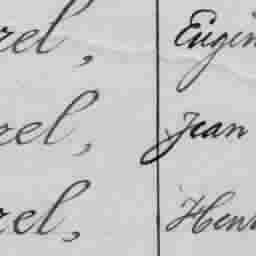 rel, Eugèn
rel, Jean
rel, Henr